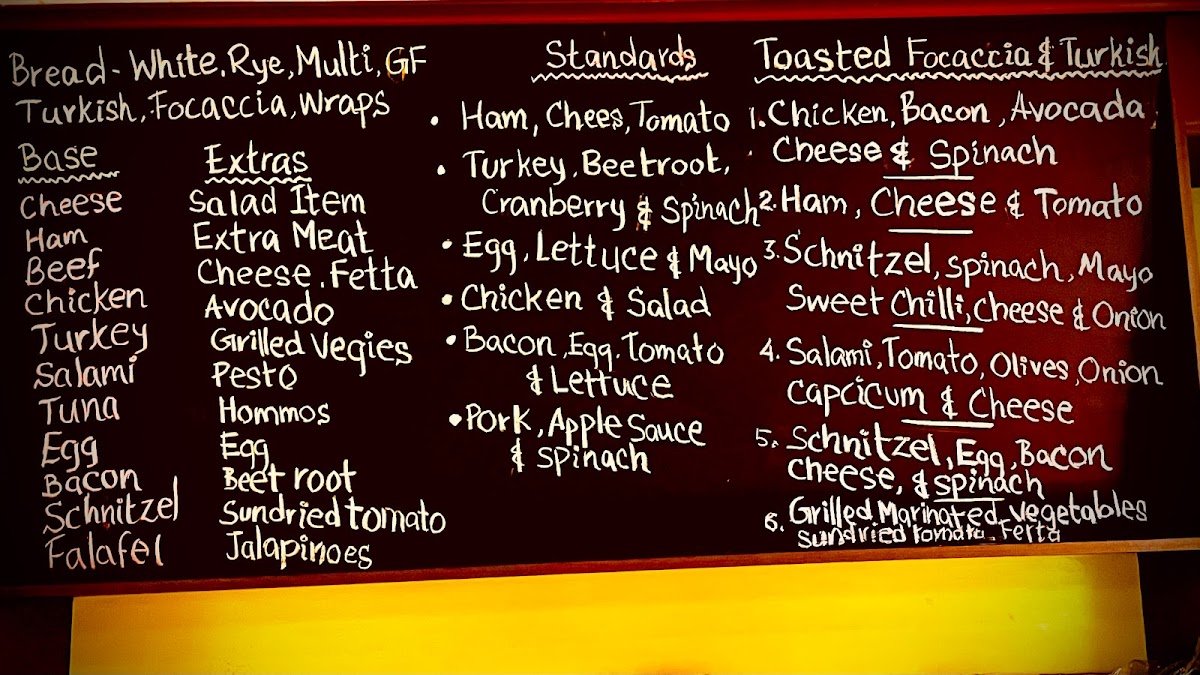 Bread - White, Rye, Multi, GF
Turkish, Focaccia, Wraps
Base
Cheese
Ham
Beef
Chicken
Turkey
Salami
Tuna
Egg
Bacon
Schnitzel
Falafel
Extras
Salad Item
Extra Meat
Cheese, Fetta
Avocado
Grilled Vegies
Pesto
Hommos
Egg
Beet root
Sundried tomato
Jalapinoes
Standards
• Ham, Chees, Tomato
• Turkey, Beetroot,
Cranberry & Spinach
• Egg, Lettuce & Mayo
• Chicken & Salad
• Bacon, Egg, Tomato
& Lettuce
• Pork, Apple Sauce
& Spinach
Toasted Focaccia & Turkish
1. Chicken, Bacon, Avocada,
Cheese & Spinach
2. Ham, Cheese & Tomato
3. Schnitzel, Spinach, Mayo
Sweet Chilli, Cheese & Onion
4. Salami, Tomato, Olives, Onion
Capcicum & Cheese
5. Schnitzel, Egg, Bacon
Cheese, & Spinach
6. Grilled, Marinated, vegetables
Sundried tomato. Fetta